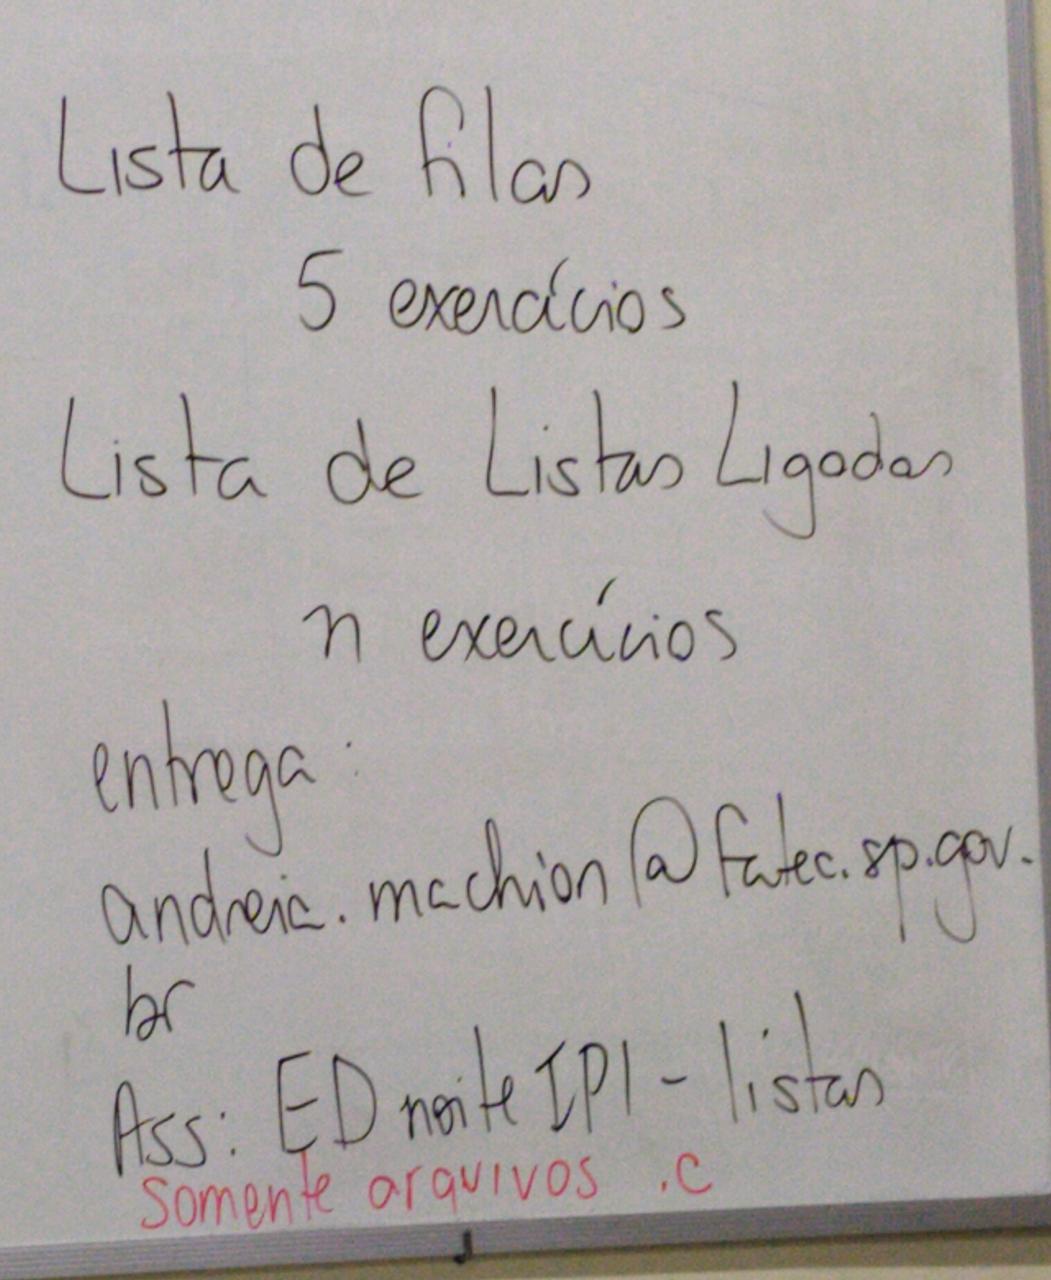 Lista de filas
5 exercícios
Lista de Listas Ligadas
n exercícios
entrega:
andreia.machion@fatec.sp.gov.
br
Ass: ED noite IPI - listas
somente arquivos .c